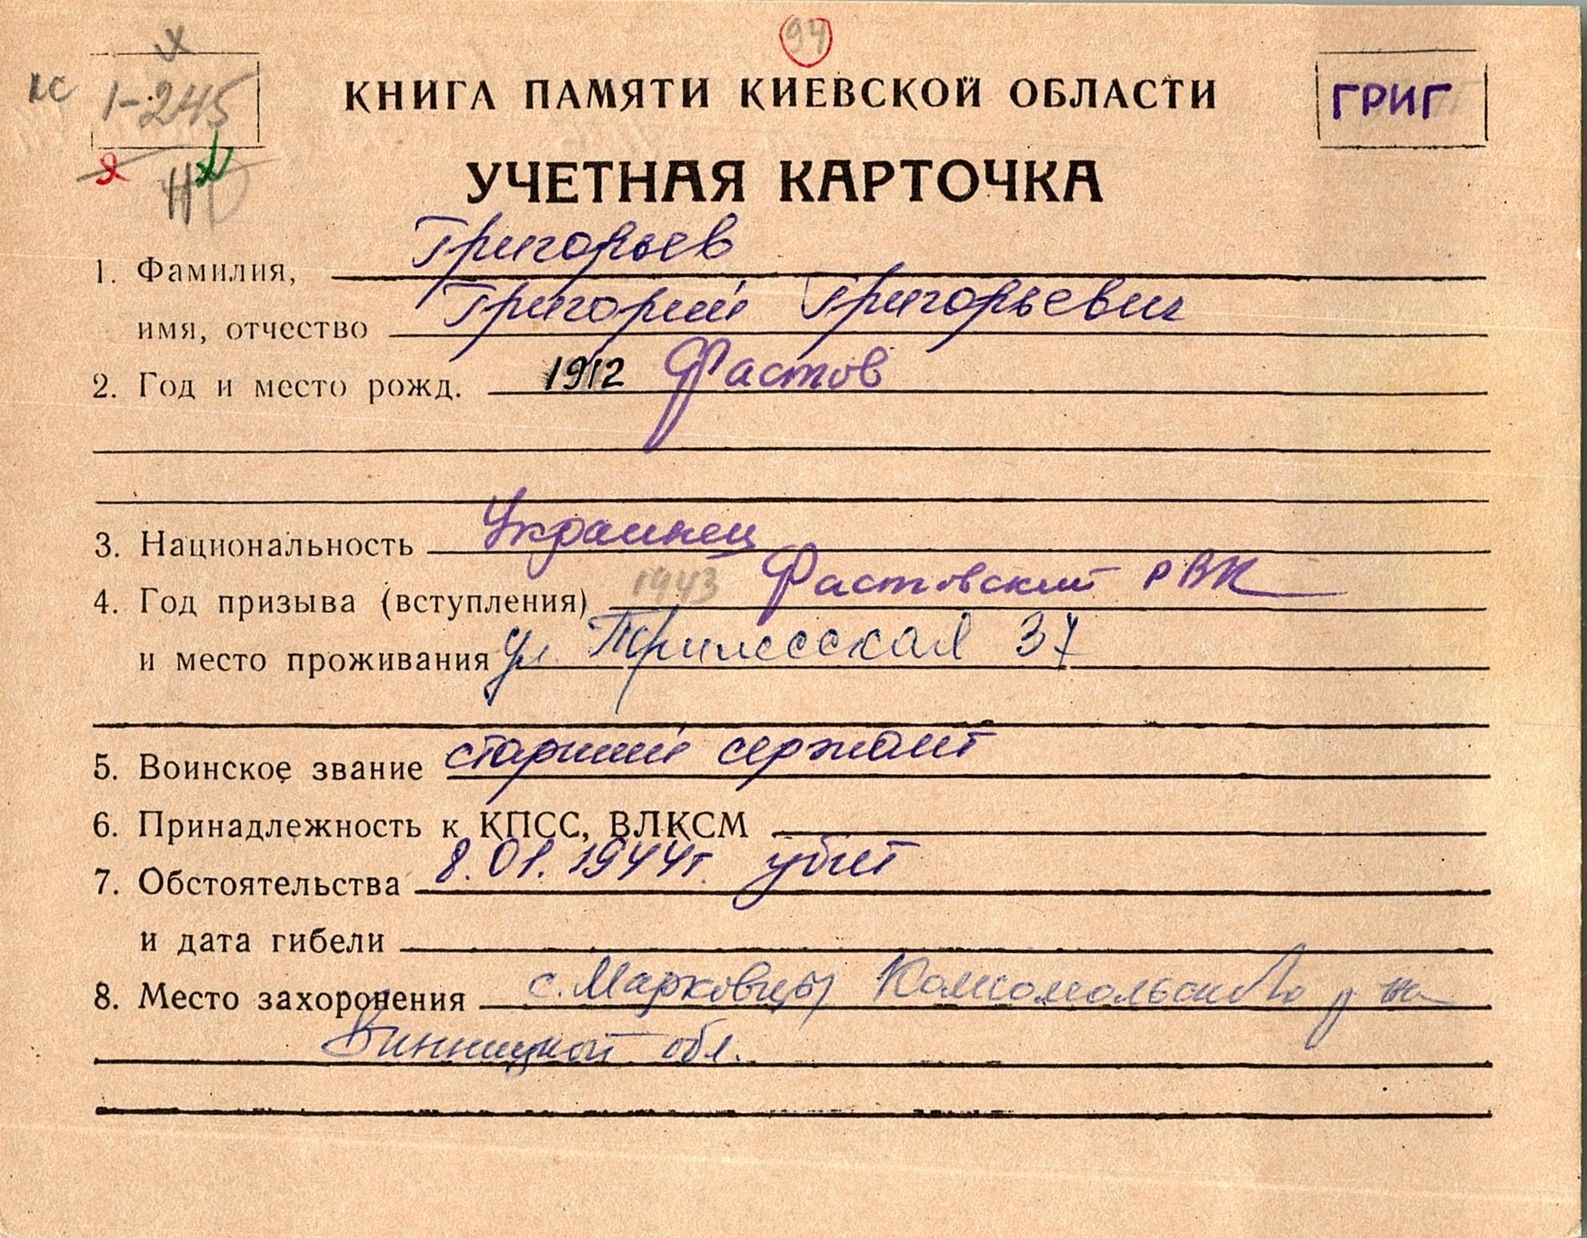 94
КС 1-245
КНИГА ПАМЯТИ КИЕВСКОЙ ОБЛАСТИ
ГРИГ
УЧЕТНАЯ КАРТОЧКА
1. Фамилия, Григорьев
имя, отчество Григорий Григорьевич
2. Год и место рожд. 1912 Фастов
3. Национальность Украинец
4. Год призыва (вступления) 1943 Фастовский РВК
и место проживания ул. Трилесская 37
5. Воинское звание старший сержант
6. Принадлежность к КПСС, ВЛКСМ
7. Обстоятельства 8.01.1944г. убит
и дата гибели
8. Место захоронения с. Марковцы Комсомольского р-на
Винницкой обл.